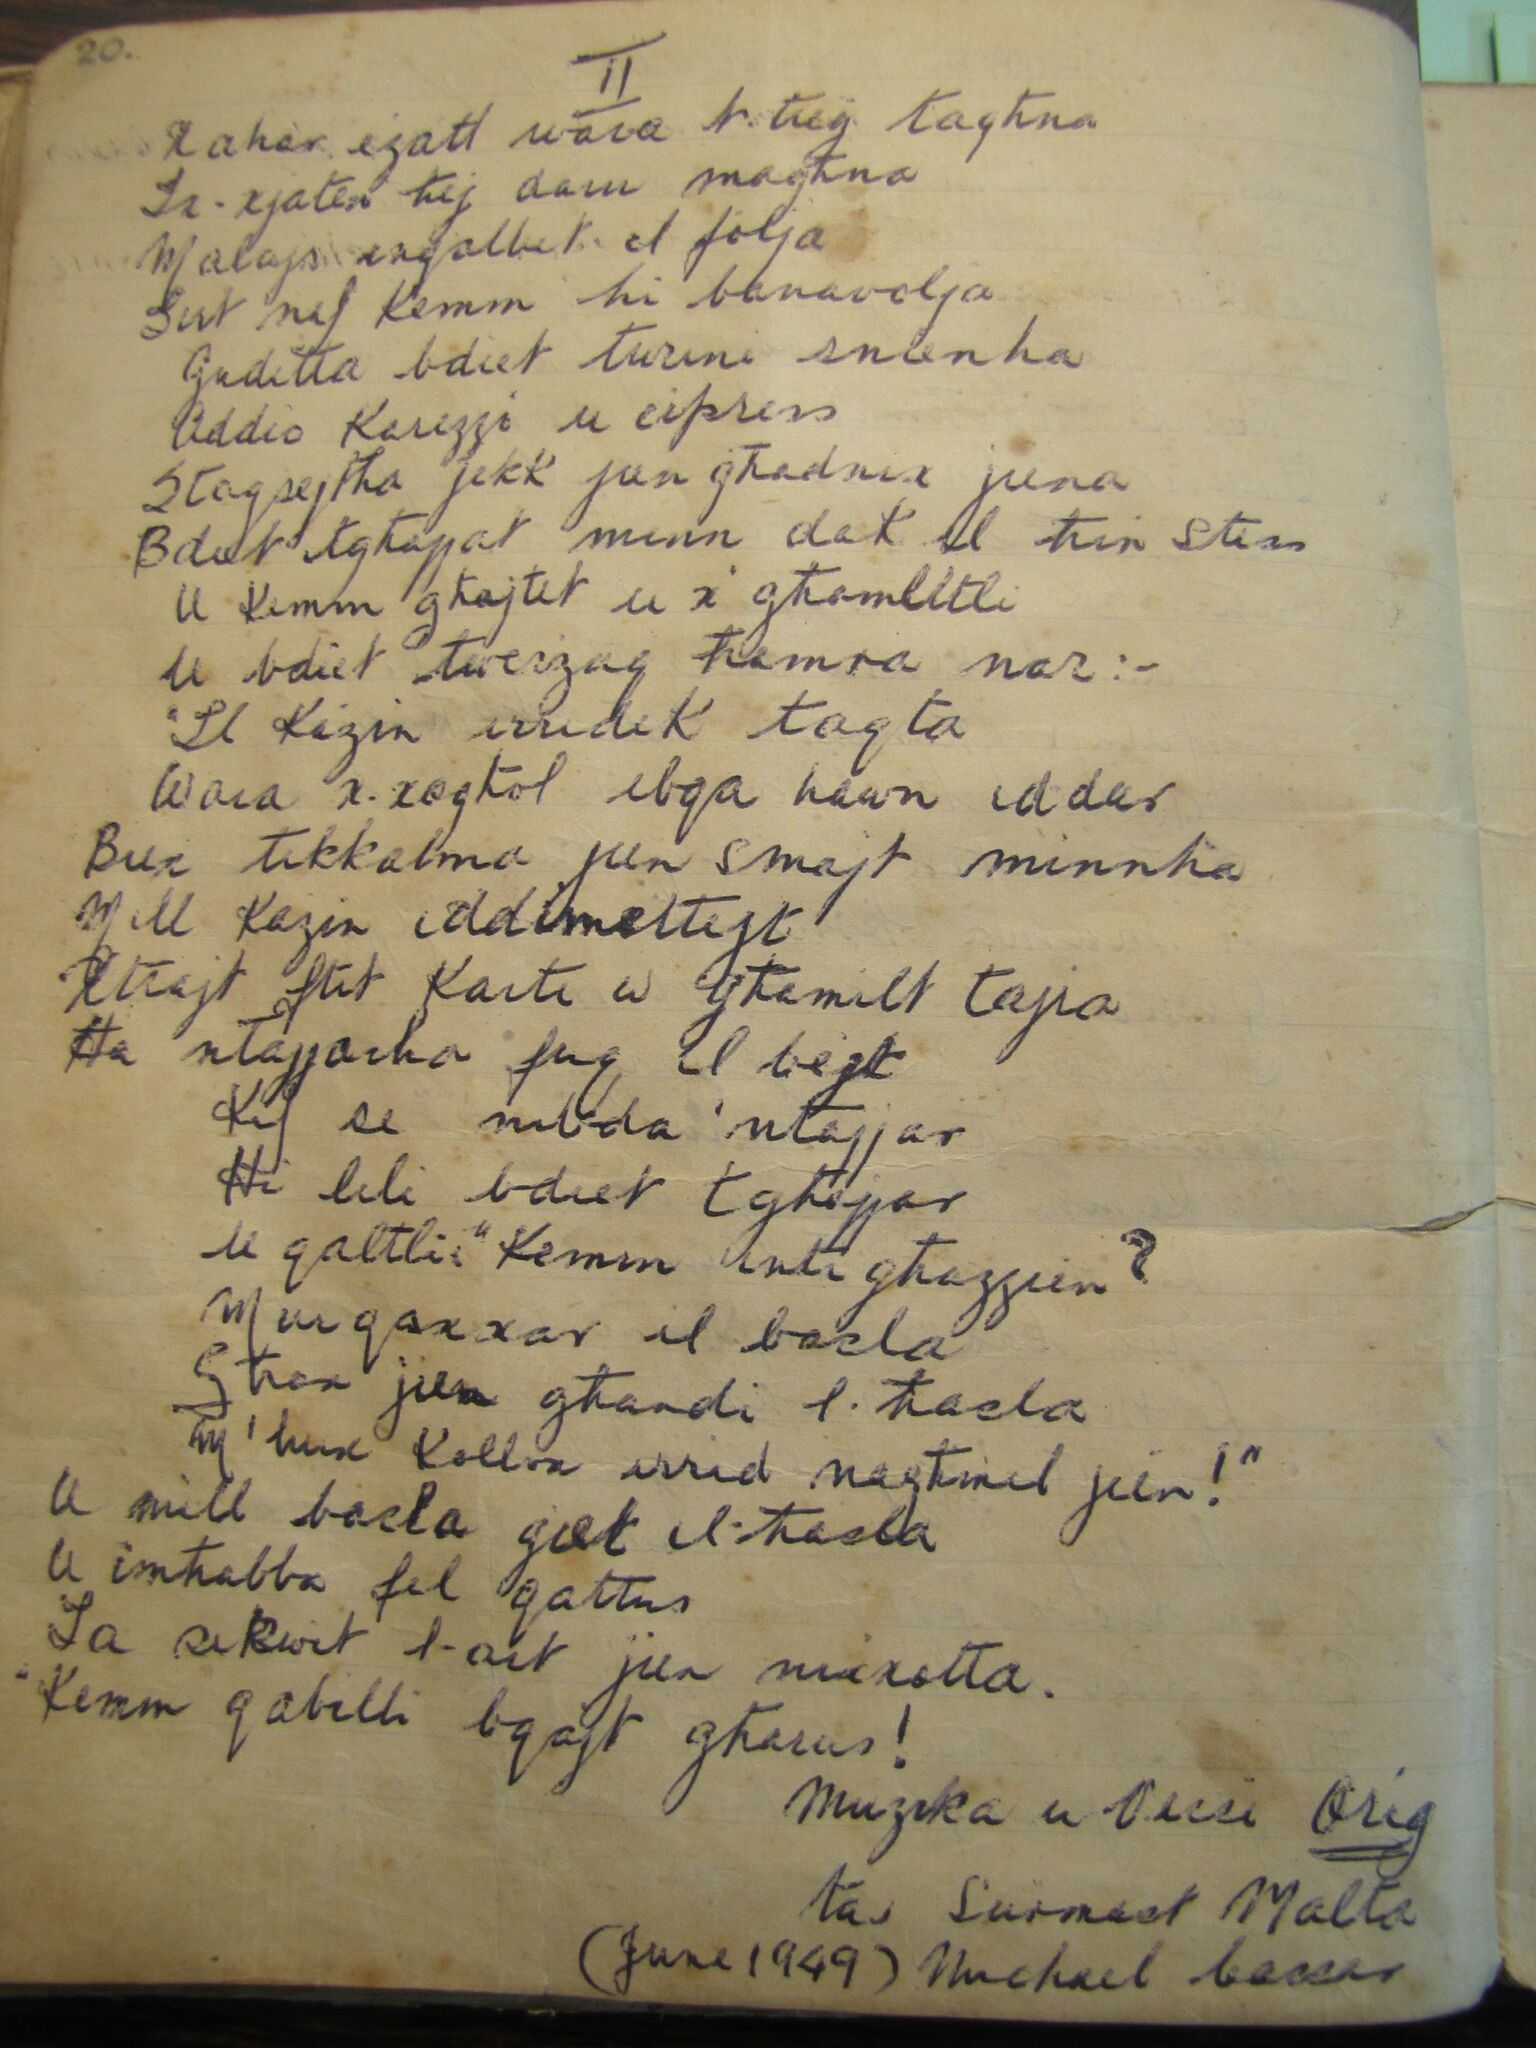 20.
II
Xahar ezatt wara t-tieg taghna
Ix-xjaten hej daru maghna
Malajr inqalbet il folja
Sirt naf kemm hi banavolja
Guditta bdiet turini snienha
Addio karezzi u cipress
Staqsejtha jekk jien ghadnix jiena
Bdiet tghajjat minn dak il hin stess
U kemm ghajtet u x' ghamlitli
U bdiet twerzaq hamra nar:-
"Il Kazin irridek taqta
Wara x-xoghol ibqa hawn iddar
Biex tikkalma jien smajt minnha
Mill Kazin iddimettejt
Xtrajt ftit karti u ghamilt tajra
Ha ntajjarha fuq il bejt
Kif se nibda 'ntajjar
Hi lili bdiet tghajjar
U qaltli: "Kemm inti ghazzien?
Mur qaxxar il basla
Ghax jien ghandi l-hasla
M'hux kollox irrid naghmel jien!"
U mill basla giet il-hasla
U imhabba fel qattus
Ia sekwit l-art jien nixxotta.
"Kemm qabilli bqajt gharus!
Muzika u Versi Orig
tas Surmast Malta
(June 1949) Michael